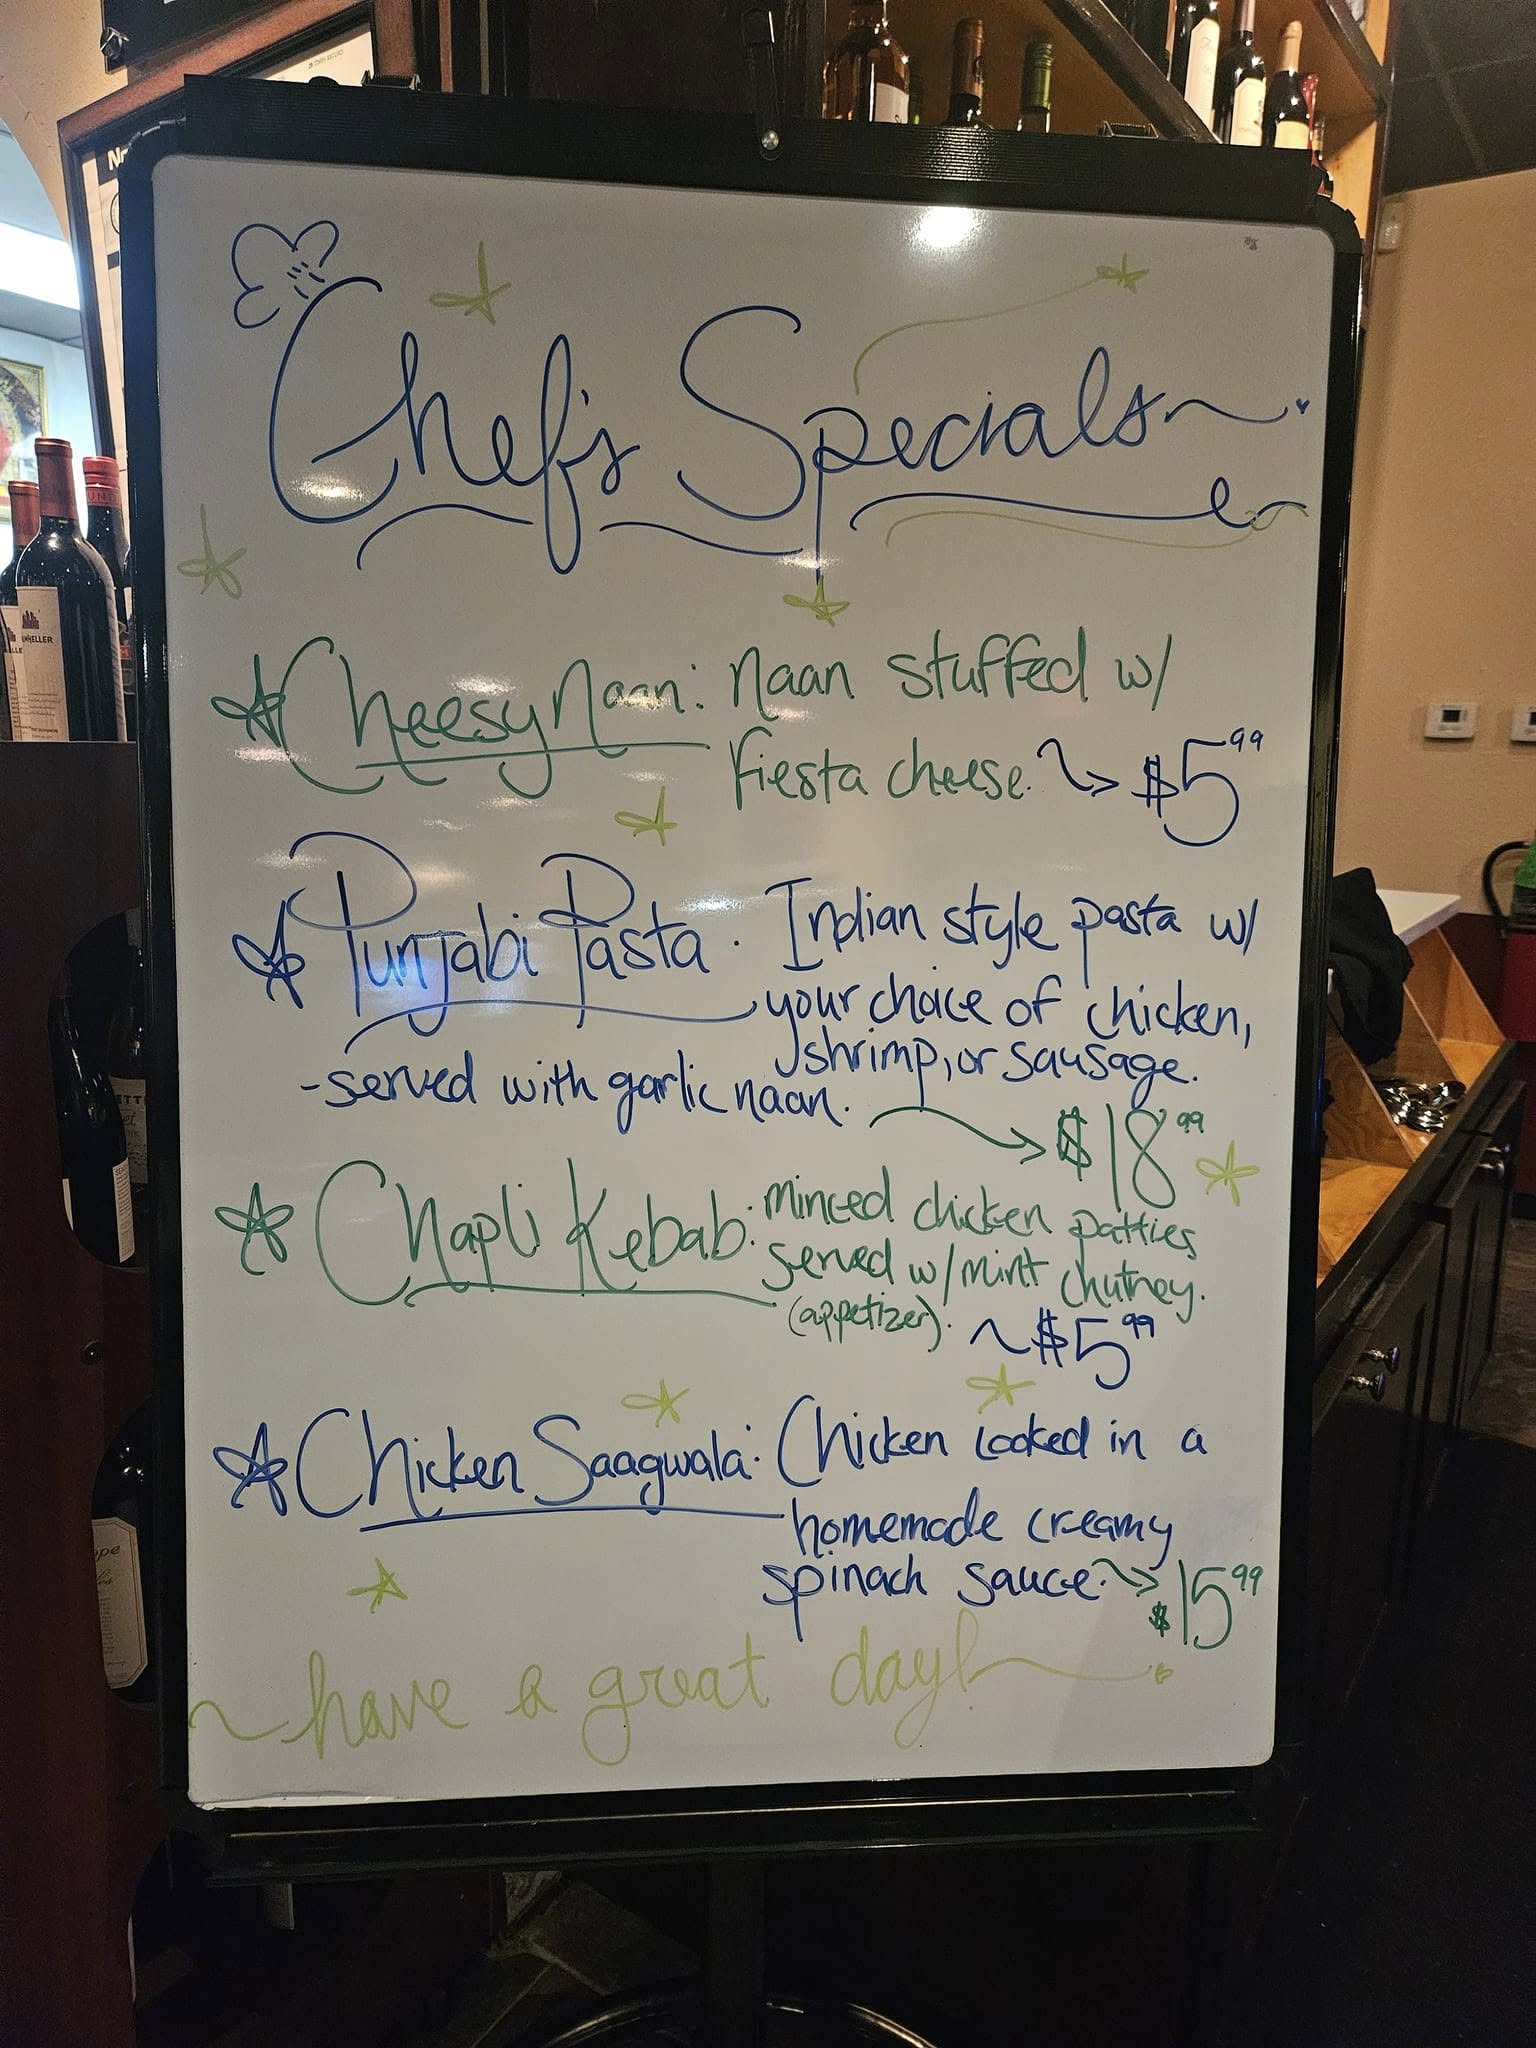 Chef's Specials
Cheesy Naan: Naan stuffed w/
fiesta cheese. $5.99
Punjabi Pasta. Indian style pasta w/
your choice of chicken,
shrimp, or sausage.
-served with garlic naan.
$18.99
Chapli Kebab: minced chicken patties
served w/ mint chutney.
(appetizer). ~$5.99
Chicken Saagwala: Chicken cooked in a
homemade creamy
spinach sauce. $15.99
~have a great day!